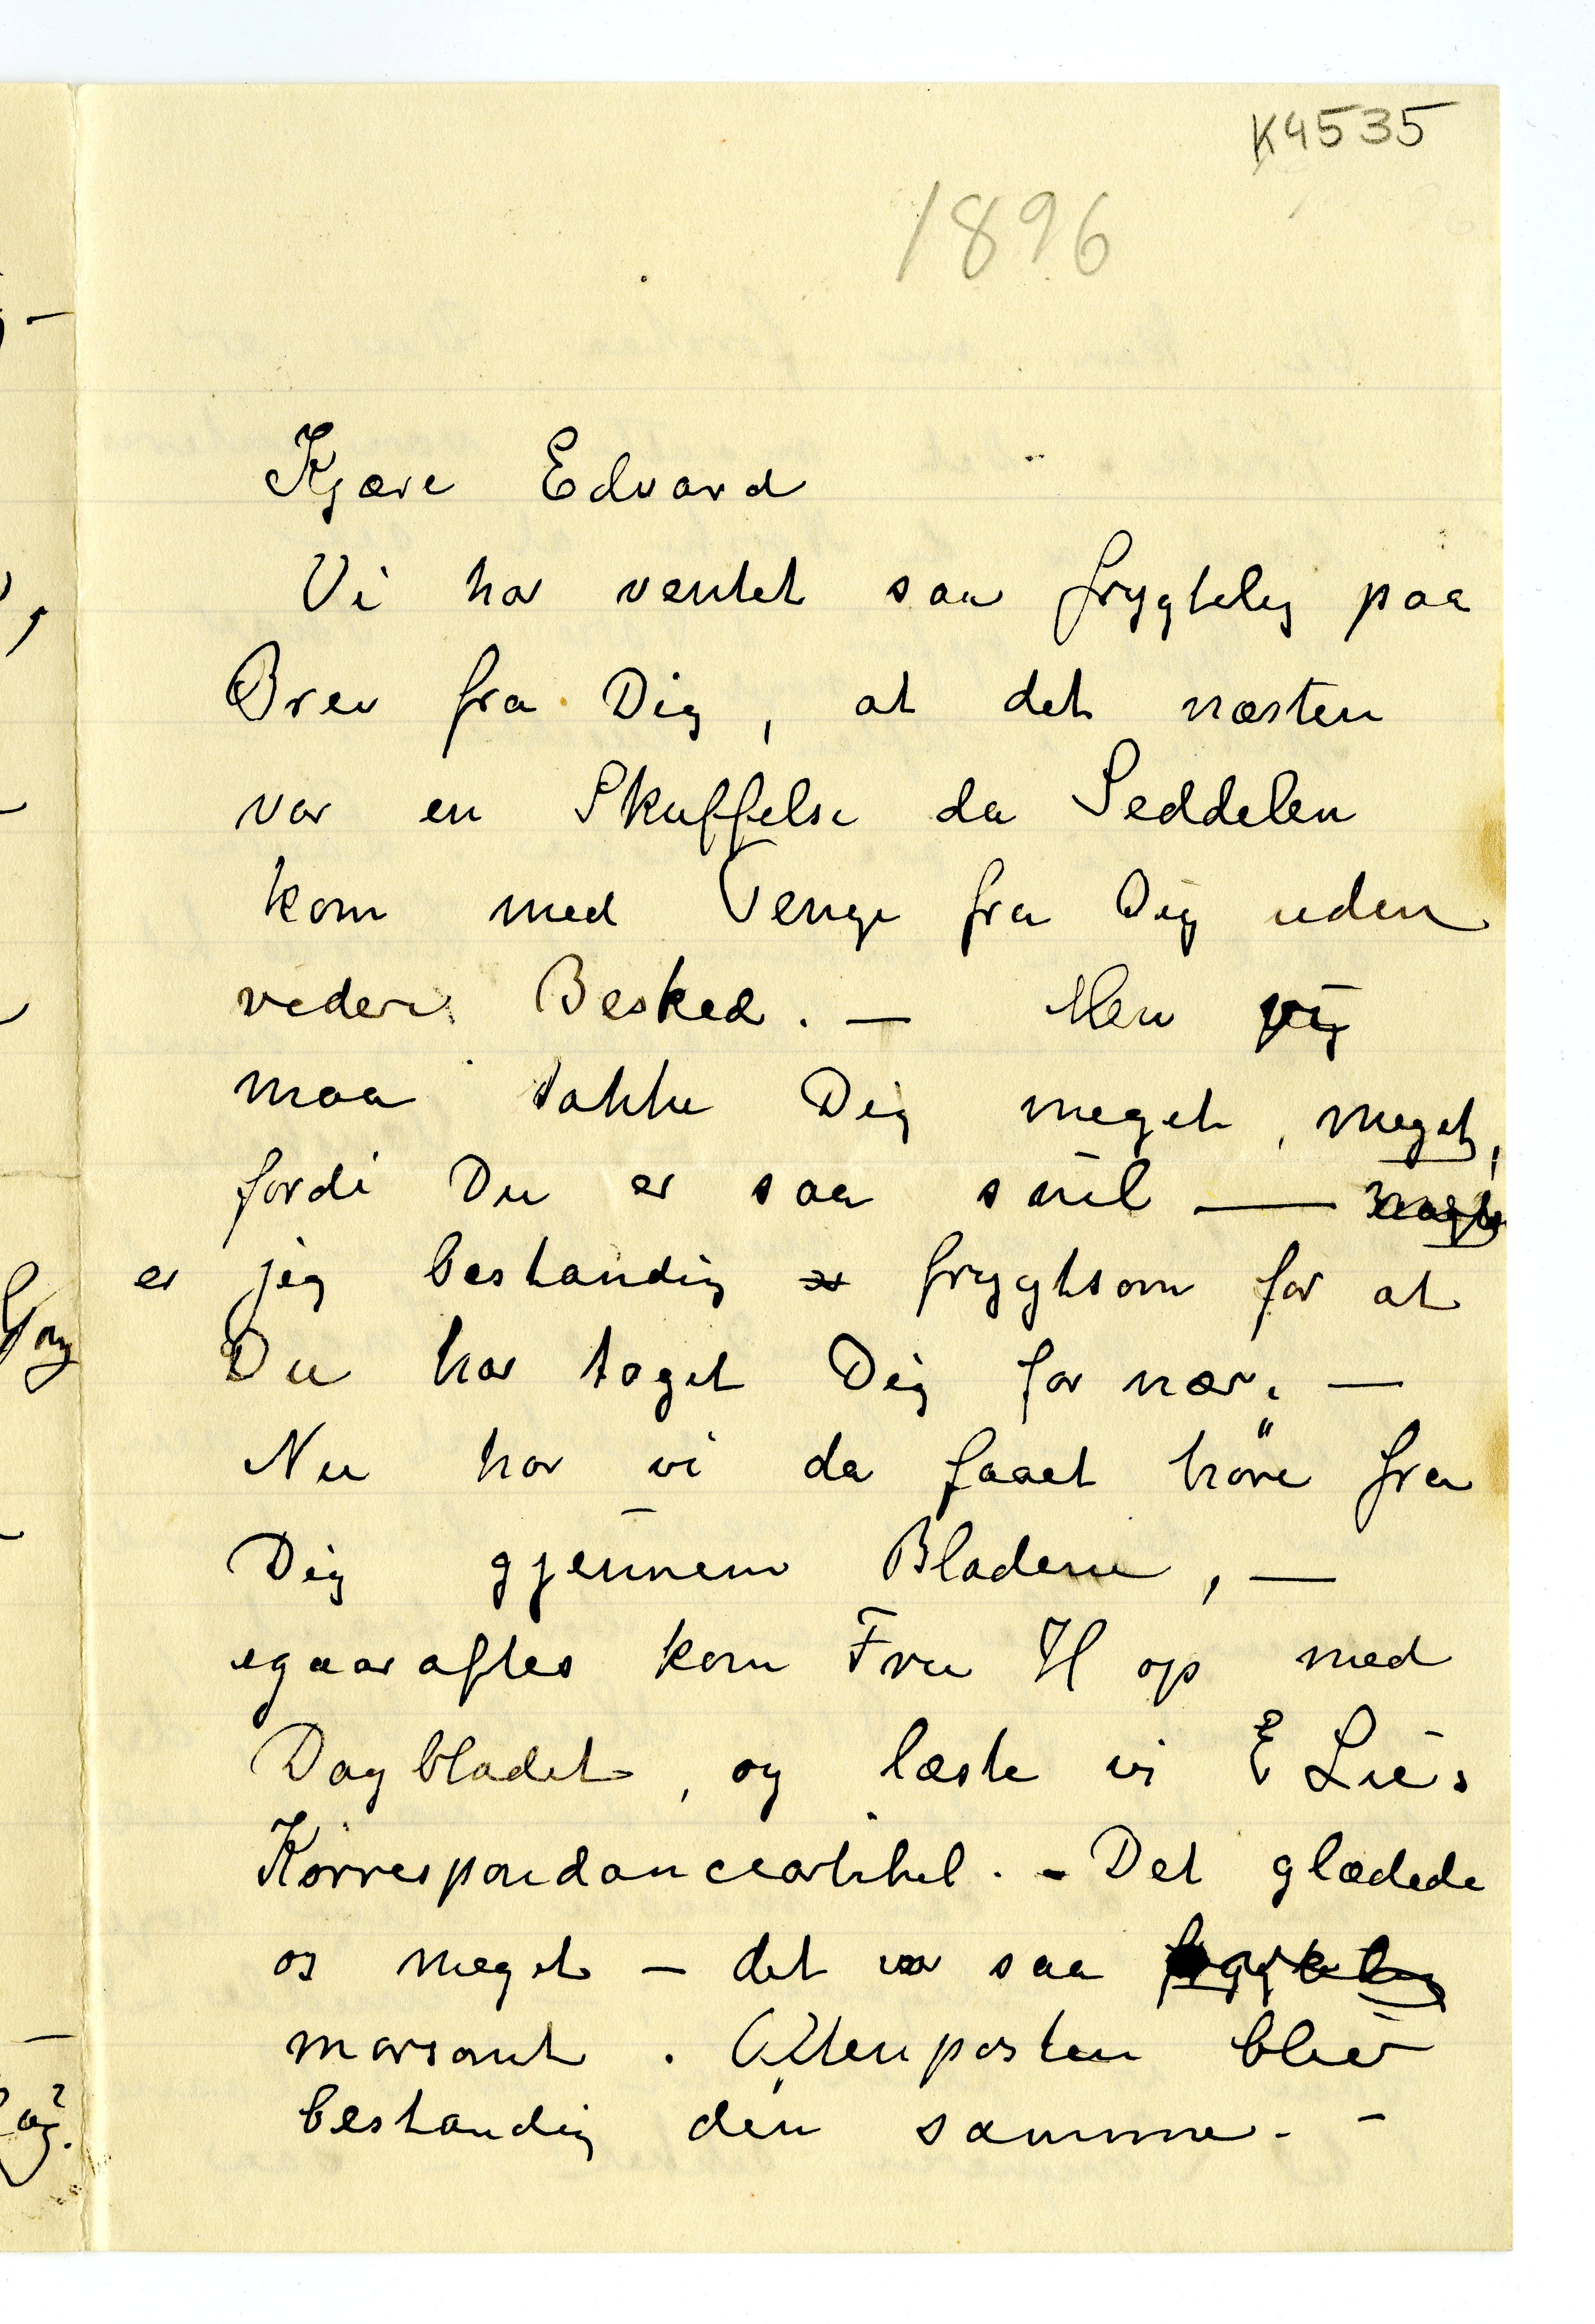 K4535
1896
Kjære Edvard
Vi har ventet saa frygtelig paa
Brev fra Dig, at det næsten
var en Skuffelse da Seddelen
kom med Penge fra Dig uden
videre Besked. — Men jeg
maa takke Dig meget, meget,
fordi Du er saa snil —
er jeg bestandig frygtsom for at
Du har taget Dig for nær. —
Nu har vi da faaet høre fra
Dig gjennem Bladene, —
igaaraftes kom Fru H op med
Dagbladet, og læste vi E Lie's
Korrespondanceartikel. - Det glædede
os meget — det var saa frygtelig
morsomt. Aftenposten blir
bestandig den samme. -